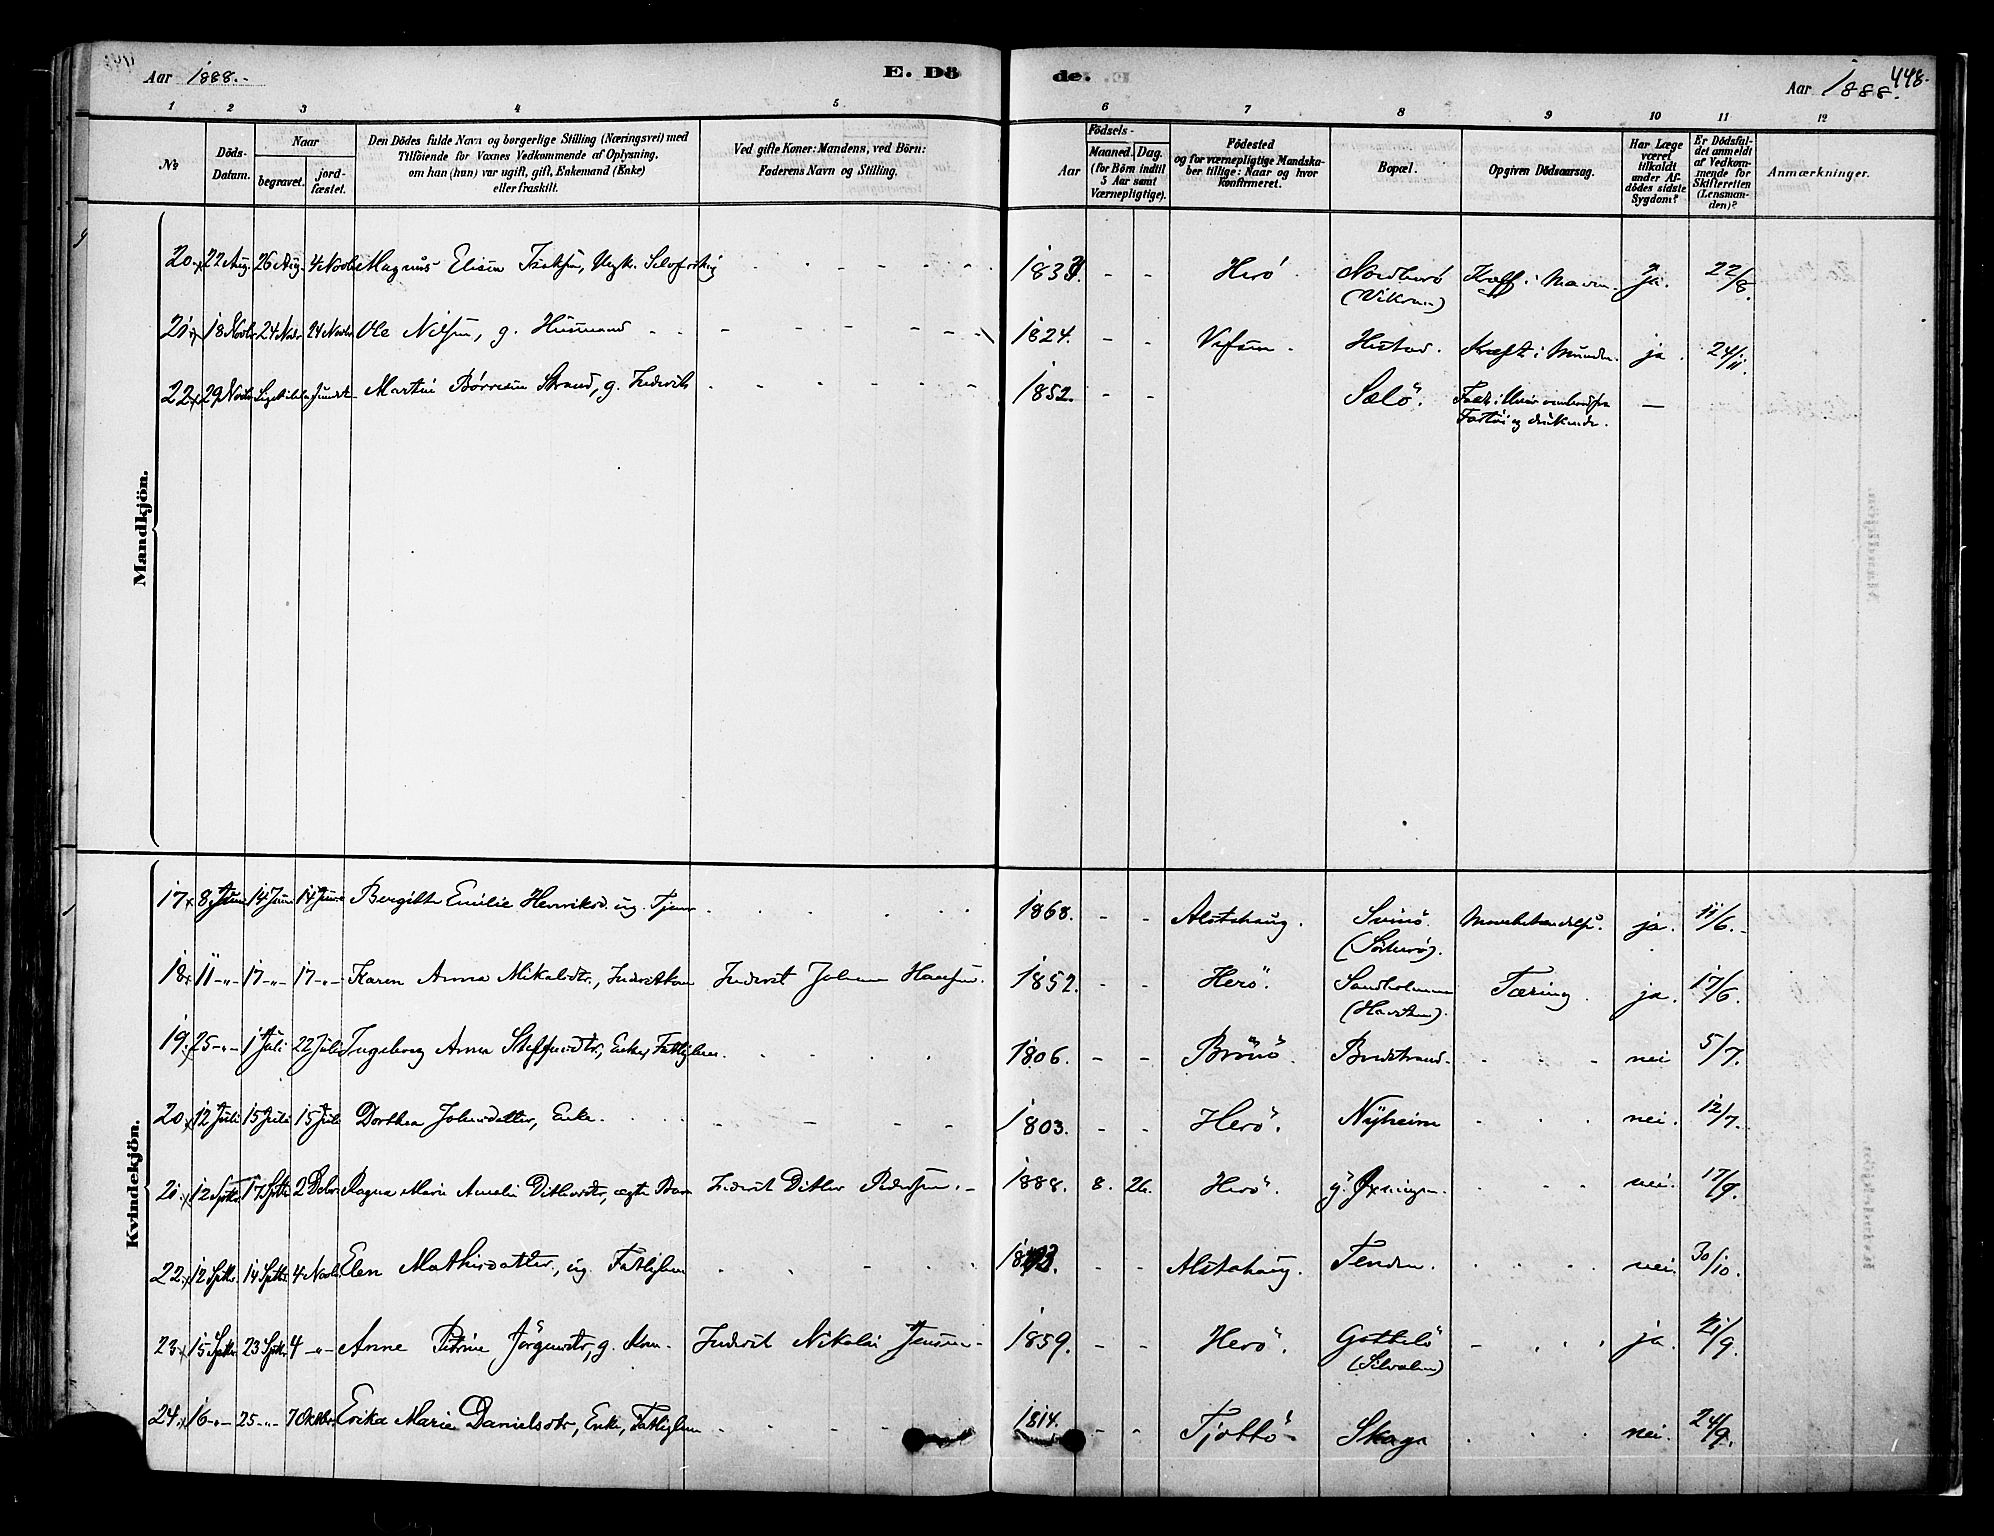 Aar 1888.
E. Dö de.
Aar 1888.
448.
1 2 3 4 5 6 7 8 9 10 11 12
No
Döds-Datum.
Naar
begravet.
jord-fæstet.
Den Dödes fulde Navn og borgerlige Stilling (Næringsvei) med
Tilföiende for Voxnes Vedkommende af Oplysning,
om han (hun) var ugift, gift, Enkemand (Enke)
eller fraskilt.
Ved gifte Koner: Mandens, ved Börn:
Faderens Navn og Stilling.
Födsels-
Aar
Maaned. Dag.
(for Börn indtil
5 Aar samt
Værnepligtige).
Födested
og for værnepligtige Mandska-
ber tillige: Naar og hvor
konfirmeret.
Bopæl.
Opgiven Dödsaarsag.
Har Læge
været
tilkaldt
under Af-
dödes sidste
Sygdom?
Er Dödsfal-
det anmeldt
af Vedkom-
mende for
Skifteretten
(Lensman-
den)?
Anmærkninger.
Mandkjön.
20. 22 Aug. 26 Aug. 4 Novbr Magnus Elisen 183 Herö. Nordherö Kræft i Maven. ja. 22/8.
21. 18 Novbr 24 Novbr 24 Novbr Ole Nilsen, g. Husmand 1824. Vefsen. Husted. Kræft i Munden. ja. 24/11.
22. 29 Novbr Martin Börresen Strand, g. Inderst 1852. Sælö.
Kvindekjön.
17. 8 Juni 14 Juni 14 Juni Bergitte Emilie Henriksd. ug. Tjen. 1868. Alstahaug. Svinö. ja. 11/6.
(Sörherö).
18. 11 -"- 17 -"- 17 -"- Karen Anna Mikalsdtr., Inderstkone Inderst Johan Hansen. 1852. Herö. Sandholmen Tæring. ja. 17/6.
19. 25 -"- 1 Juli 22 Juli Ingeborg Anna Steffensdtr., Enke, Fattiglem 1806. Brönö. Bredstrand. nei 5/7.
20. 12 Juli 15 Juli 15 Juli Dorthea Johnsdatter, Enke. 1803. Herö. Nÿheim nei. 12/7.
21. 12 Sptbr 17 Sptbr 2 Ragna Marie Amalie Ditlevsdtr, ægte Barn Inderst Ditlev Pedersen. 1888. 8. 26. Herö. Öxningen. nei. 17/9.
22. 12 Sptbr. 14 Sptbr 4 Novbr Elen Mathisdatter, ug. Fattiglem Alstahaug. Tenden. nei. 30/10.
23. 15 Sptbr 23 Sptbr 4 -"- Anne Petrine Jörgensdtr, g. Kone. Inderst Nikolai Jensen. 1859. Herö. Gåsselö ja. 21/9.
24. 16 -"- 25 -"- 7 Oktbr Erika Marie Danielsdtr, Enke, Fattiglem 1814. Tjöttö Skaga nei. 24/9.